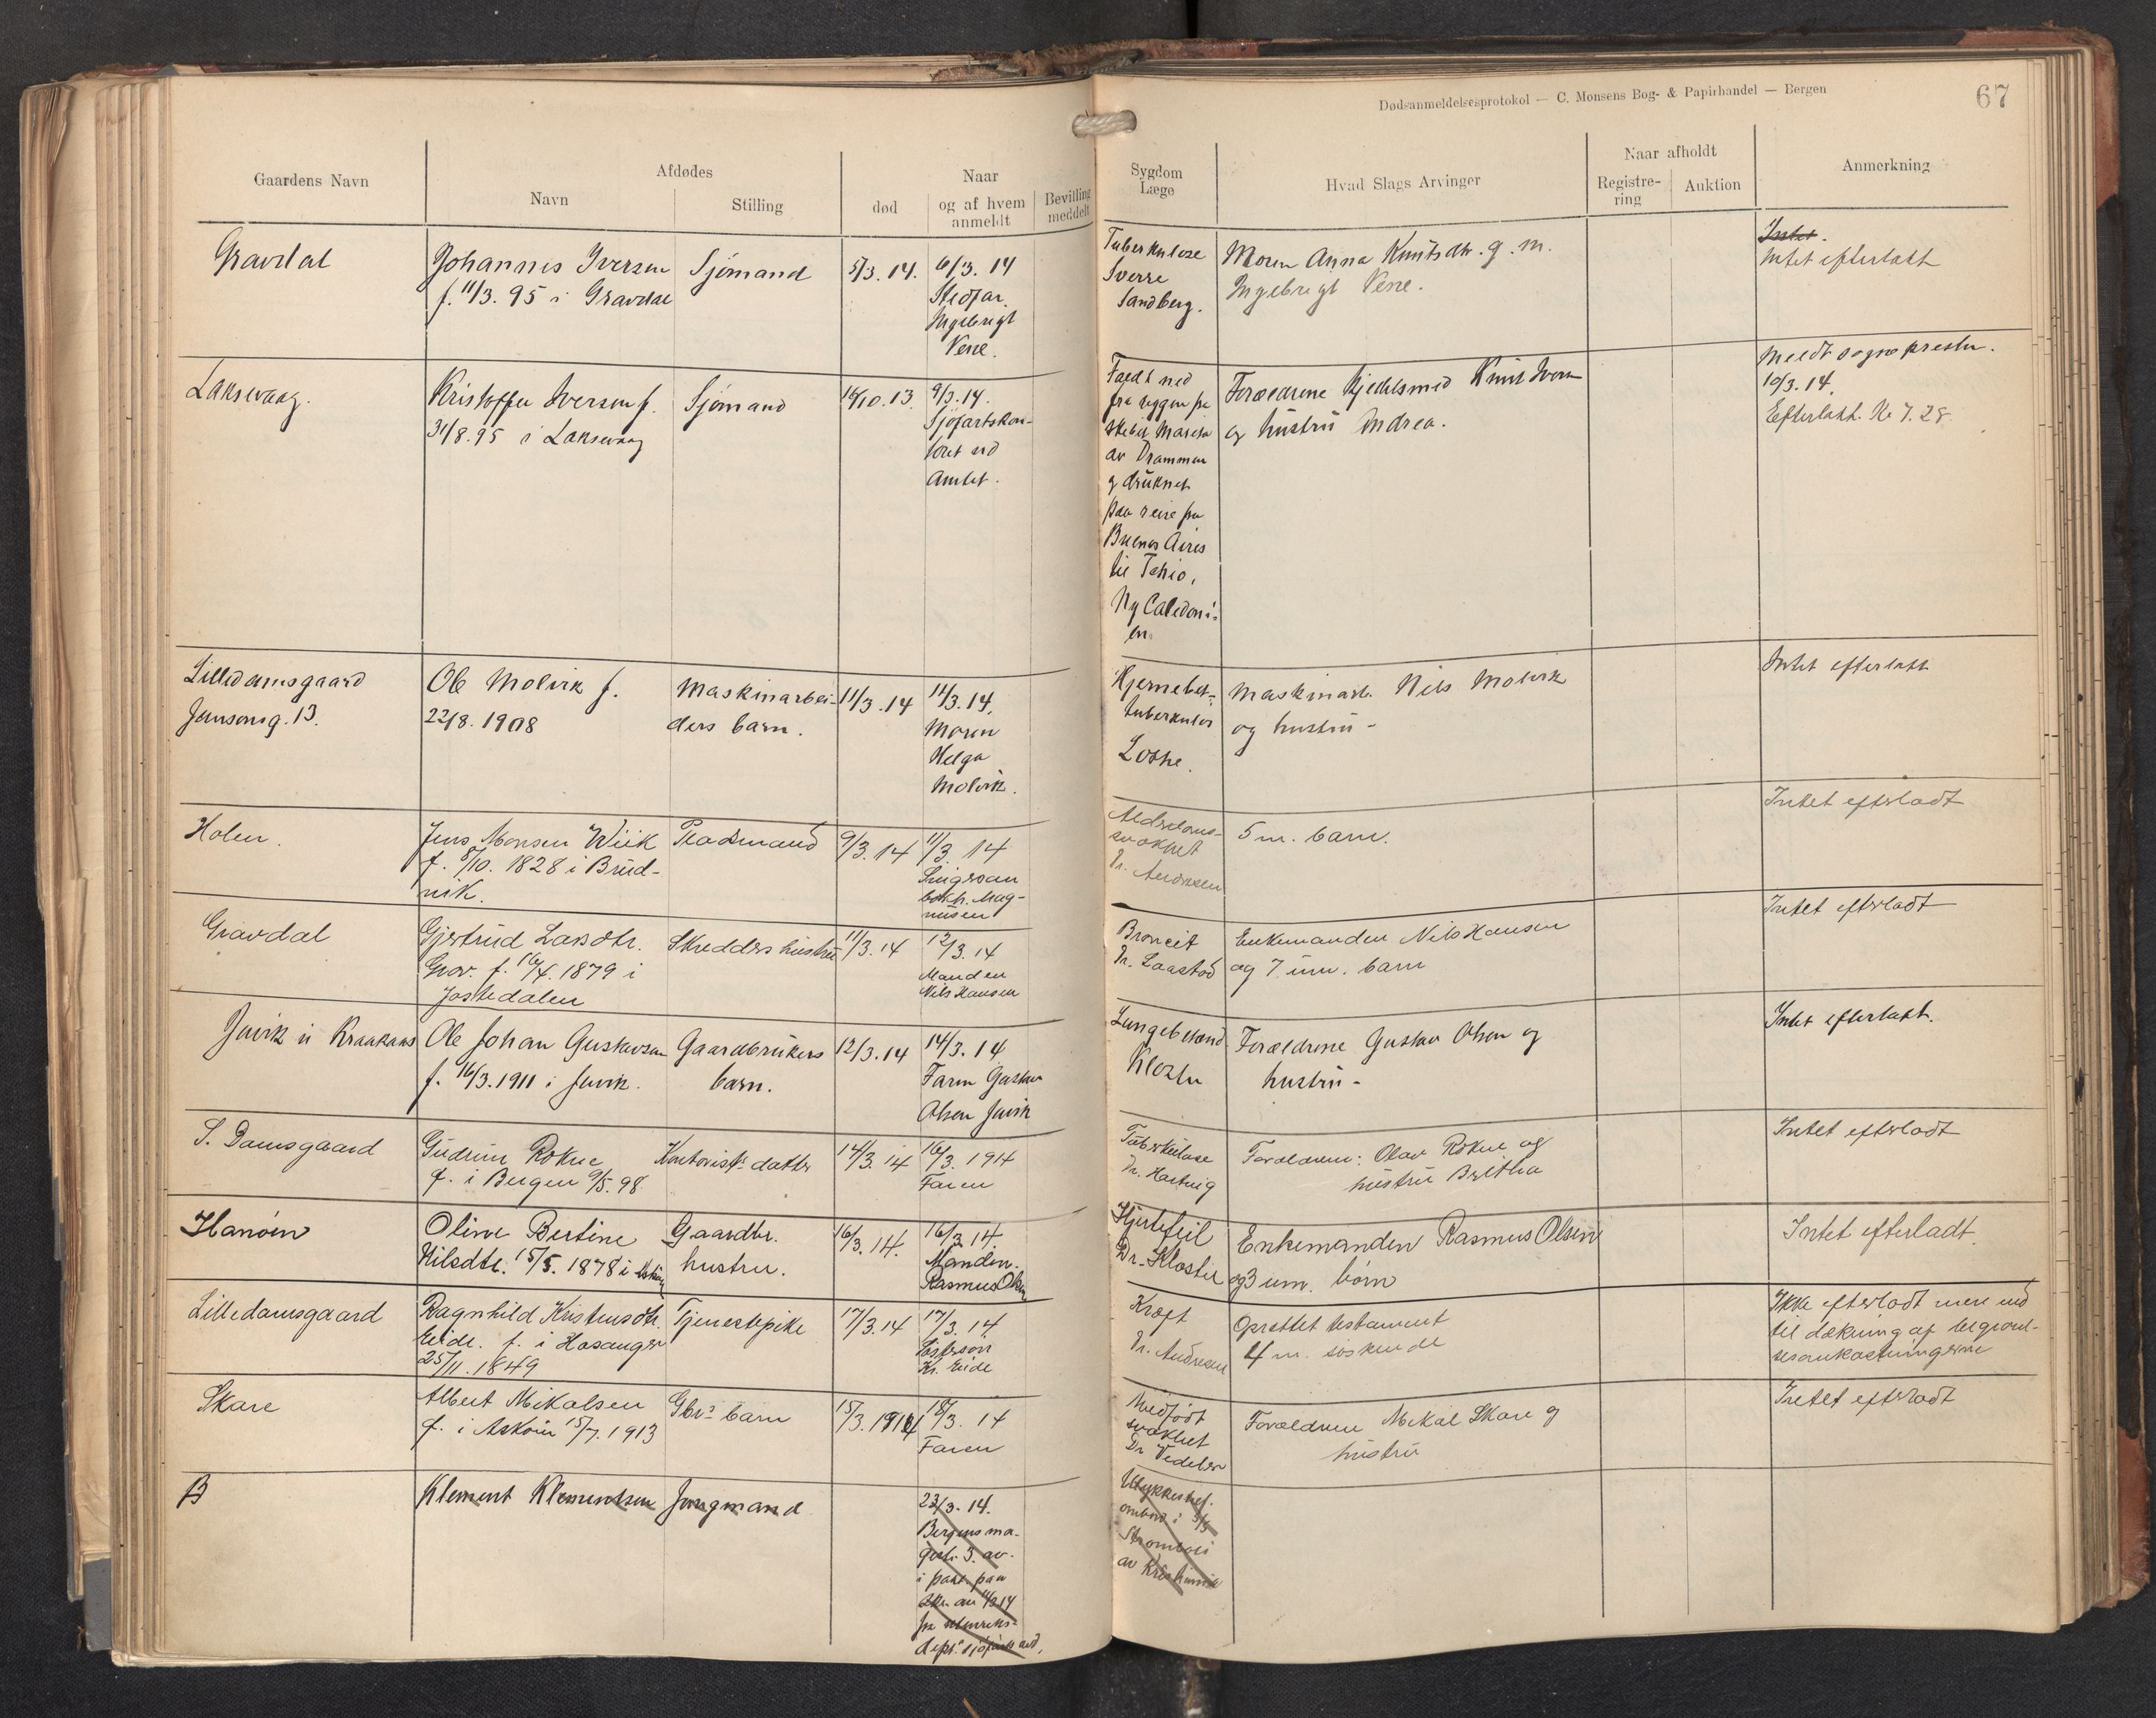 Dødsanmeldelsesprotokol — C. Monsens Bog- & Papirhandel — Bergen
67
Gaardens Navn
Afdødes
Navn
Stilling
død
Naar
og af hvem
anmeldt
Bevilling
meddelt
Sygdom
Læge
Hvad Slags Arvinger
Naar afholdt
Registre-
ring
Auktion
Anmerkning
Gravdal
Johannis Iversen
f. 11/3. 95 i Gravdal
Sjømand
5/3. 14.
6/3. 14
Stedfar.
Ingebrigt
Vene.
Tuberkulose
Sverre
Sandberg.
Moren Anna Knutsdtr. g. m.
Ingebrigt Vene.
Intet.
Intet efterlatt
Laksevaag.
Kristoffer Iversen f.
31/8. 95 i Laksevaag
Sjømand
16/10. 13.
9/3. 14.
Sjøfartskon-
toret ved
Amtet.
Faldt ned
fra riggen paa
skibet
av Drammen
og druknet
paa reise fra
Buenos Aires
til Tchio,
Ny Caledoni-
en.
Forældrene Kjedelsmed Knut Iversen
og hustru Andrea.
Meldt sognepresten.
10/3. 14.
Efterlatt. Kr 7.28.
Lilledamsgaard
Jansensg. 13.
Ole Molvik f.
22/8. 1908
Maskinarbei-
ders barn.
11/3. 14
11/3. 14.
Moren
Helga
Molvik.
Hjernebet.
tuberkulos
Lothe.
Maskinarb. Nils Molvik
og hustru -
Intet efterlatt
Holen.
Jens Monsen Wiik
f. 8/10. 1828 i Brud-
vik.
Pladsmand
9/3. 14
11/3. 14
Svigersøn
bokh. Mag-
nusen
Alderdoms-
svakhet
Dr. Andresen
5 m. barn.
Intet efterladt
Gravdal
Gjertrud Larsdtr.
Grov. f. 16/4. 1879 i
Jostedalen
Skredders hustru
11/3. 14
12/3. 14
Manden
Nils Hansen
Broncit
Dr. Laastad
Enkemanden Nils Hansen
og 7 um. barn
Intet efterladt
Juvik u Kraakaas
Ole Johan Gustavsen
f. 16/3. 1911 i Juvik.
Gaardbrukers
barn.
12/3. 14
14/3. 14
Faren Gustav
Olsen Juvik
Lungebetænd
Kloster
Forældrene Gustav Olsen og
hustru -
Intet efterlatt.
S. Damsgaard
Gudrun Rokne
f. i Bergen 9/5. 98.
Kontorists datter
14/3. 14
16/3. 1914
Faren
Tuberkulose
Dr. Hartvig
Forældrene: Olav Rokne og
hustru Britha
Intet efterladt
Hanøen
Oline Bertine
Nilsdtr. 15/5. 1878 i
Gaardbr.
hustru.
16/3. 14.
16/3 14
Manden.
Rasmus Olsen
Hjertefeil
Dr. Kloster
Enkemanden Rasmus Olsen
og 3 um. børn
Intet efterladt.
Lilledamsgaard
Ragnhild Kristensdtr.
Eide. f. i Hosanger
25/11. 1849
Tjenestepike
17/3. 14
17/3. 14
Søstersøn
Kr. Eide
Kræft
Dr. Andresen
Oprettet testament
4 m. søskende
Ikke efterladt mere end
til dækning af begravel-
sesomkostningerne
Skare
Albert Mikalsen
f. i Askøen 15/7. 1913
Gbrs barn
15/3. 1914
18/3. 14
Faren
Medfødt
svakhet
Dr Vedeler
Forældrene Mikal Skare og
hustru
Intet efterladt
B
Klement Klementsen
Jungmand
23/3. 14.
Bergens ma-
gistr. 3. av.
i paategn. paa
skr. av
fra utenriks-
dept.
Ulykkestilf.
ombord i S/S
av Kristiania